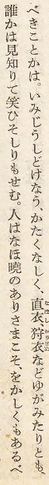 べきことかは。いみじうしどけなう、かたくなしく、直衣、狩衣などゆがみたりとも、
誰かは見知りて笑ひそしりもせむ。人はなほ暁のありさまこそ、をかしくもあるべ